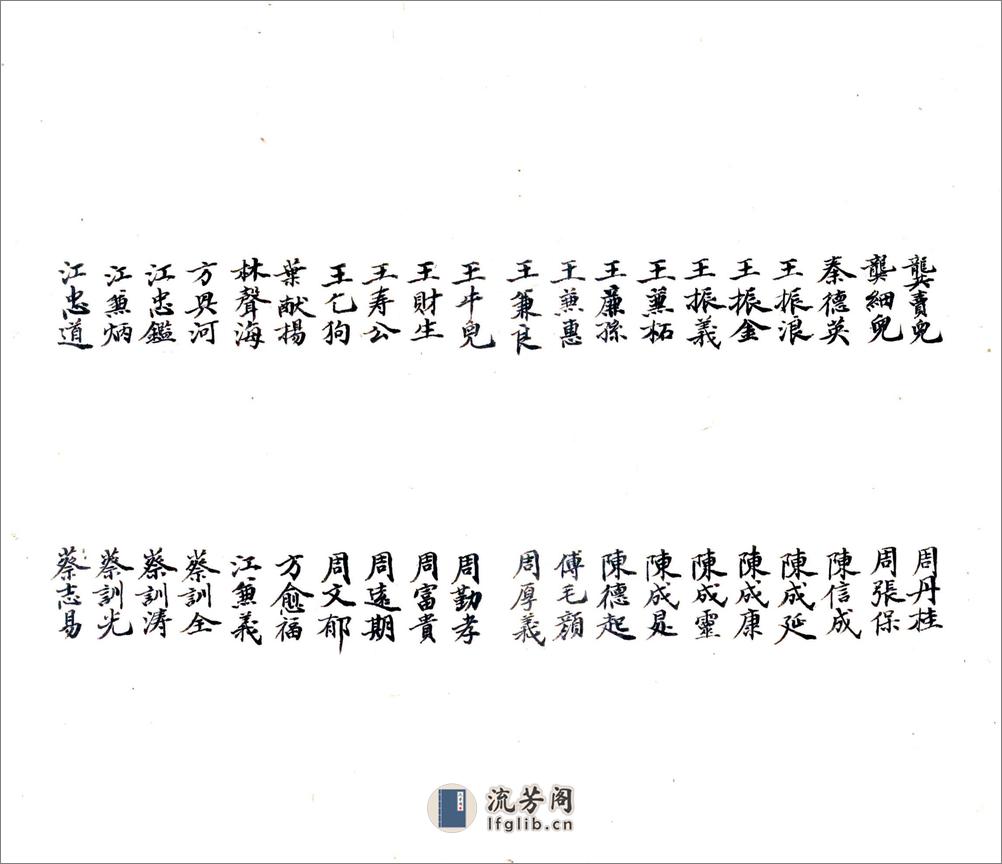 龔賣兒
龔細兒
秦德英
王振浪
王振金
王振義
王蕙柘
王廉孫
王蕙惠
王兼良
王牛兒
王財生
王寿公
王乞狗
葉献楊
林聲海
方興河
江忠鑑
江兼炳
江忠道
周丹桂
周張保
陳信成
陳成延
陳成康
陳成靈
陳成
陳德起
傅毛
周厚義
周勤孝
周富貴
周遠期
周文郁
方愈福
江兼義
蔡訓全
蔡訓涛
蔡訓光
蔡志易
流芳阁
lfglib.cn